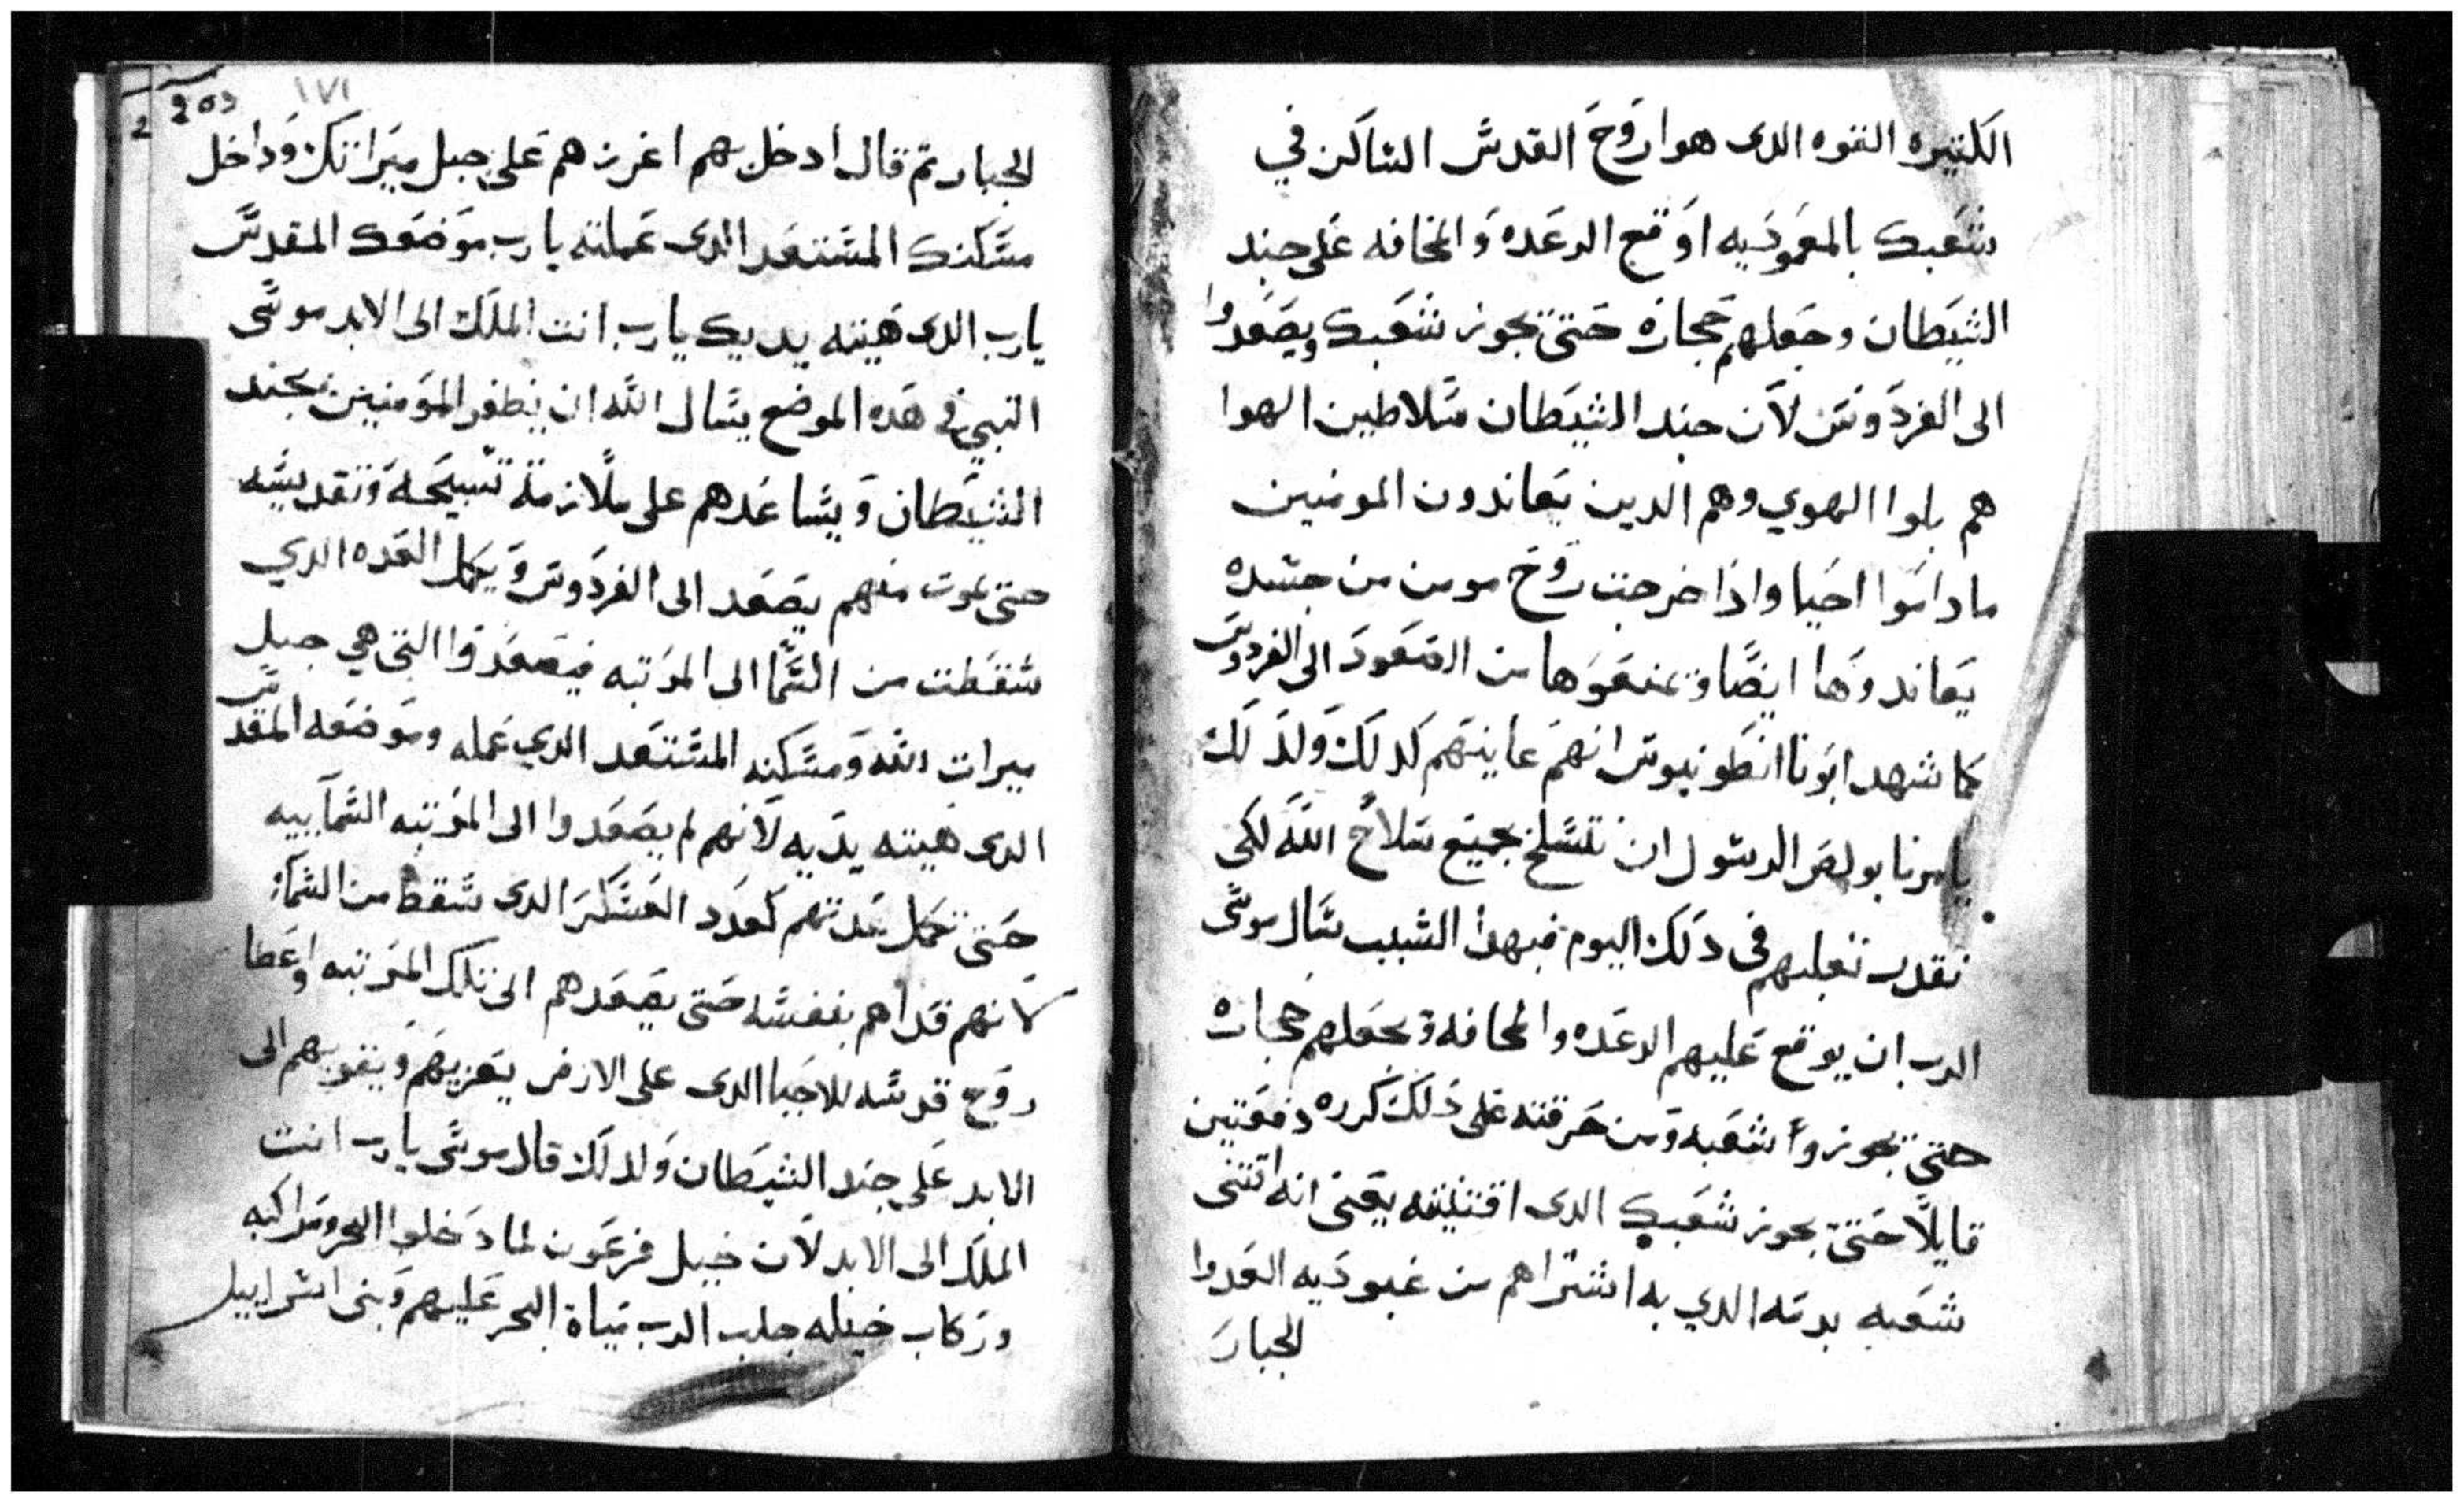 الكتيره القوه الدى هوا روح القدس الساكن في
شعبك بالمعموديه اوقع الرعده والمخافه على جند
الشيطان وجعلهم حجاره حتى تجوز شعبك ويصعدوا
الى الفردوس لان جند الشيطان سلاطين الهوا
هم بلوا الهوي وهم الدين يعاندون المومنين
ما داموا احيا واذا خرجت روح مومن من جسده
يعاندوها ايضا ويمنعوها من الصعود الى الفردوس
كما شهد ابونا انطونيوس انهم عاينهم كدلك ولدلك
يامرنا بولص الرسول ان نتسلح بجميع سلاح الله لكى
نقدر نغلبهم فى دلك اليوم فبهدا السبب سال موسى
الرب ان يوقع عليهم الرعده والمخافه ويجعلهم حجاره
حتى يجوزوا شعبه ومن حرقته على دلك كرره دفعتين
قايلا حتى يجوز شعبك الدى اقتنيته يعنى انه اقتنى
شعبه بدمه الدي به اشتراهم من عبوديه العدوا
الجبار
203
2
١٧١
الجبار تم قال ادخل بهم اغرزهم على جبل ميراتك وداخل
مسكنك المستعد الدى عملته يارب موضعك المقدس
يارب الدى هيته يديك يارب انت الملك الى الابد موسى
النبي فى هده الموضع يسال الله ان يظفر المومنين بجند
الشيطان ويساعدهم على ملازمة تسبيحه وتقديسه
حتى يموت منهم يصعد الى الفردوس ويكمل العده الدي
سقطت من السما الى المرتبه فيصعدوا التى هي جبل
ميرات الله ومسكنه المستعد الدي عمله وموضعه المقدس
الدى هيته يديه لانهم لم يصعدوا الى المرتبه السماييه
حتى تكمل عدتهم كعدد العسكر الدى سقط من السما
لانهم فداهم بنفسه حتى يصعدهم الى تلك المرتبه واعطا
روح قدسه للاحيا الدى على الارض يعزيهم ويقويهم الى
الابد على جند الشيطان ولدلك قال موسى يارب انت
الملك الى الابد لان خيل فرعون لما دخلوا البحر ومراكبه
وركاب خيله جلب الرب مياة البحر عليهم وبنى اسراييل